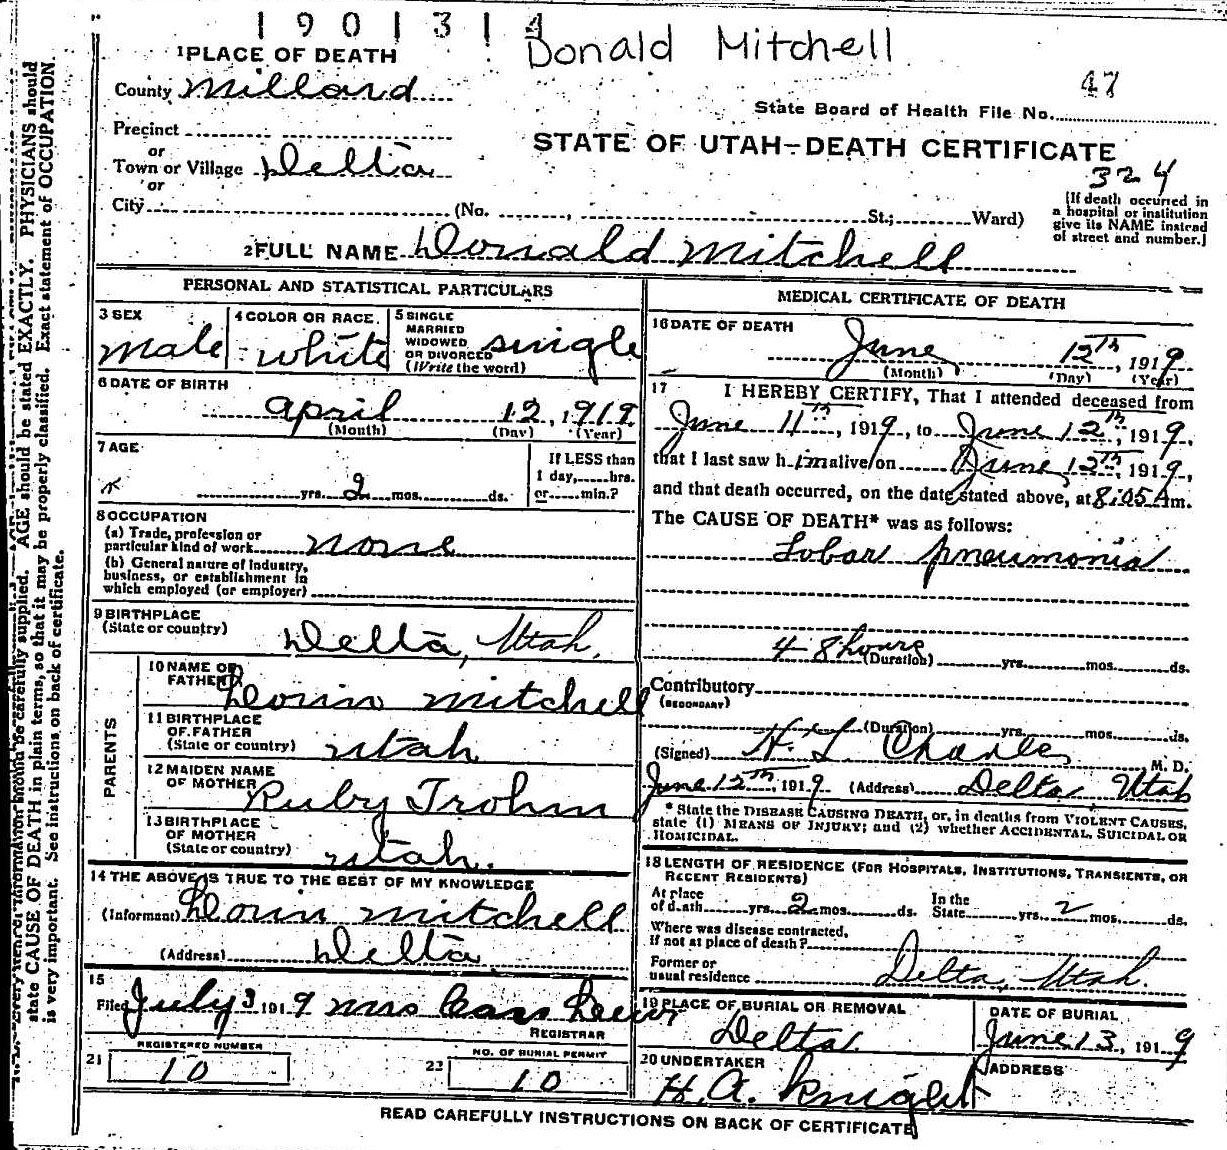 1901314
Donald Mitchell
1 PLACE OF DEATH
County Millard
47
State Board of Health File No.
Precinct
STATE OF UTAH—DEATH CERTIFICATE
or
Town or Village Delta
324
or
City (No. , St.; Ward)
[If death occurred in
a hospital or institution
give its NAME instead
of street and number.]
2 FULL NAME Donald Mitchell
PERSONAL AND STATISTICAL PARTICULARS
3 SEX
Male
4 COLOR OR RACE
White
5 SINGLE
MARRIED
WIDOWED
OR DIVORCED
(Write the word)
single
6 DATE OF BIRTH
April 12, 1919
(Month) (Day) (Year)
7 AGE
If LESS than
1 day, hrs.
or min.?
yrs. 2 mos. ds.
8 OCCUPATION
(a) Trade, profession or
particular kind of work none
(b) General nature of industry,
business, or establishment in
which employed (or employer)
9 BIRTHPLACE
(State or country)
Delta, Utah.
PARENTS
10 NAME OF
FATHER
Dorin Mitchell
11 BIRTHPLACE
OF FATHER
(State or country) Utah
12 MAIDEN NAME
OF MOTHER
Ruby Trohm
13 BIRTHPLACE
OF MOTHER
(State or country) Utah.
14 THE ABOVE IS TRUE TO THE BEST OF MY KNOWLEDGE
(Informant) Dorin Mitchell
(Address) Delta
15
Filed July 3 1919 Mrs
REGISTRAR
REGISTERED NUMBER
21 10
NO. OF BURIAL PERMIT
22 10
MEDICAL CERTIFICATE OF DEATH
16 DATE OF DEATH
June 12th, 1919
(Month) (Day) (Year)
17 I HEREBY CERTIFY, That I attended deceased from
June 11th, 1919, to June 12th, 1919,
that I last saw h im alive on June 12th, 1919,
and that death occurred, on the date stated above, at 8:05 A m.
The CAUSE OF DEATH* was as follows:
Lobar pneumonia
48 hours
(Duration) yrs. mos. ds.
Contributory
(SECONDARY)
(Duration) yrs. mos. ds.
(Signed) H. L. Charles M. D.
June 12th, 1919 (Address) Delta Utah
* State the DISEASE CAUSING DEATH, or, in deaths from VIOLENT CAUSES,
state (1) MEANS OF INJURY; and (2) whether ACCIDENTAL, SUICIDAL OR
HOMICIDAL.
18 LENGTH OF RESIDENCE (FOR HOSPITALS, INSTITUTIONS, TRANSIENTS, OR
RECENT RESIDENTS)
At place
of death yrs. 2 mos. ds.
In the
State yrs. 2 mos. ds.
Where was disease contracted,
if not at place of death?
Former or
usual residence Delta, Utah.
19 PLACE OF BURIAL OR REMOVAL
Delta.
DATE OF BURIAL
June 13, 1919
20 UNDERTAKER
H. A. Knight
ADDRESS
READ CAREFULLY INSTRUCTIONS ON BACK OF CERTIFICATE
should be carefully supplied. AGE should be stated EXACTLY. PHYSICIANS should
state CAUSE OF DEATH in plain terms, so that it may be properly classified. Exact statement of OCCUPATION
is very important. See instructions on back of certificate.